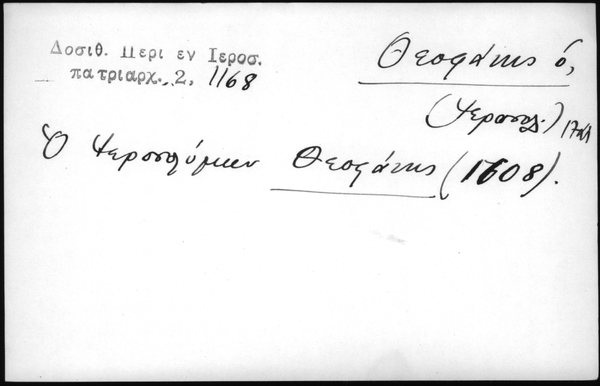 Δοσιθ. Περι εν Ιεροσ.
πατριαρχ. 2, 1168
Θεοφάνης ὁ,
(Ἱεροσολ.)
Ὁ Ἱεροσολύμων Θεοφάνης (1608).